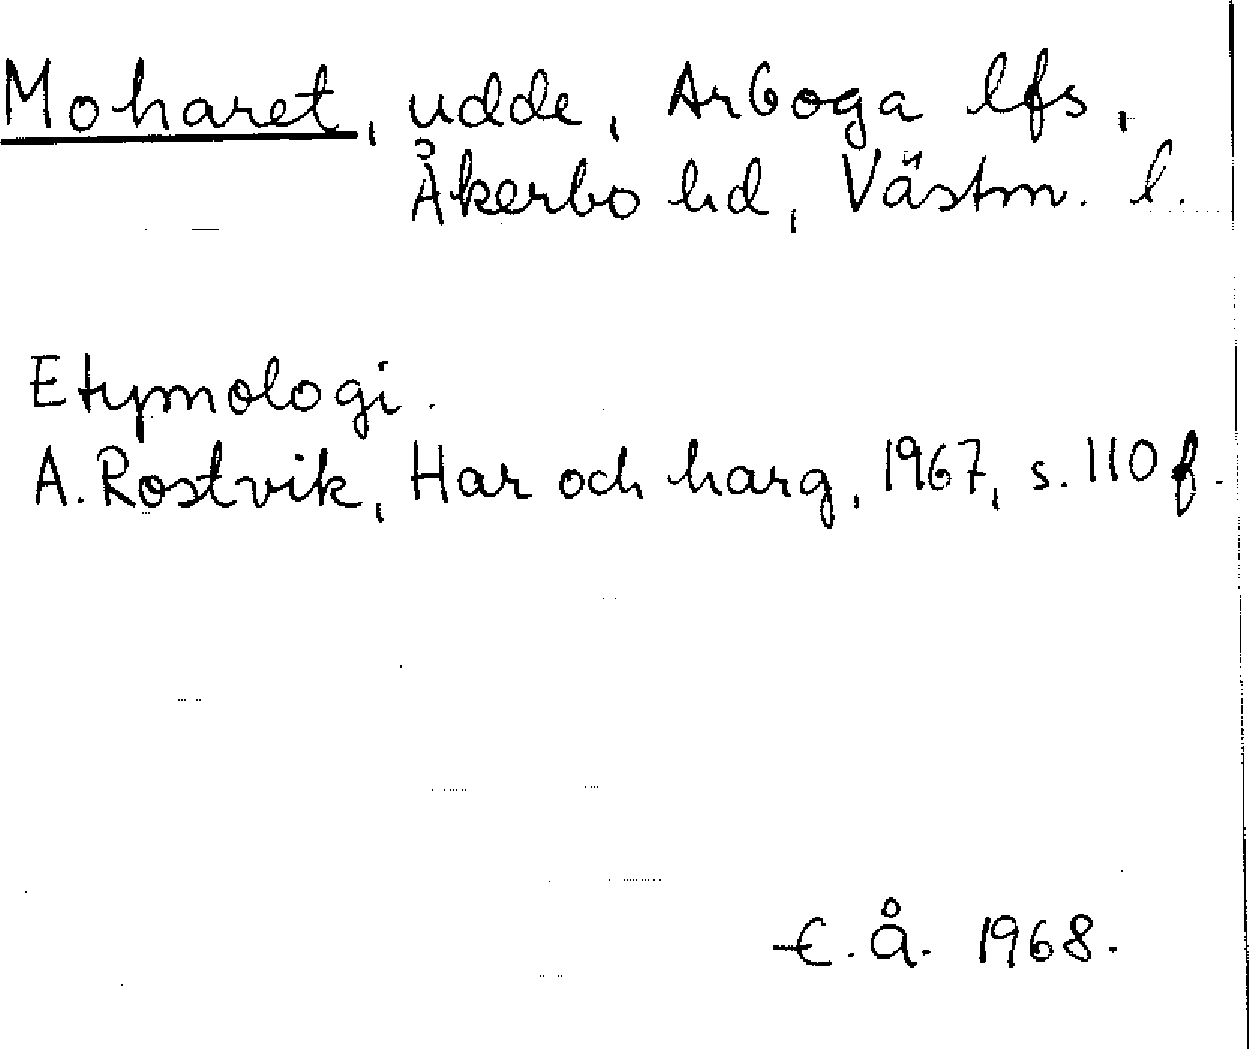 Moharet, udde, Arboga lfs,
Åkerbo hd, Västm. l.
Etymologi.
A. Rostvik, Har och harg, 1967, s. 110 f.
E. Å. 1968.